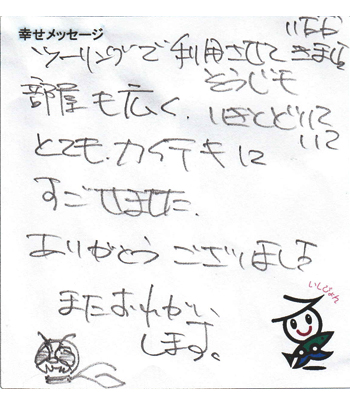 幸せメッセージ
ツーリングで利用させていただきました
部屋も広く、そうじもいきとどいていて
とても、カイテキに
すごせました。
ありがとうございました
またおねがい
します。
いしぴょん